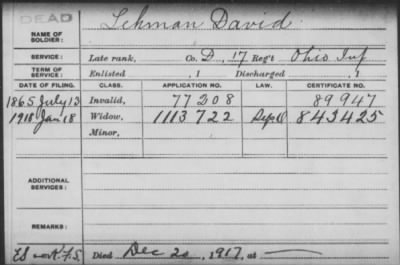 DEAD
NAME OF SOLDIER: Lehman David
SERVICE: Late rank, Co. D, 17 Reg't Ohio Inf
TERM OF SERVICE: Enlisted , 1 Discharged , 1
DATE OF FILING. CLASS. APPLICATION NO. LAW. CERTIFICATE NO.
1865 July 13 Invalid, 77208 89947
1918 Jan 18 Widow, 1113722 843425
Minor,
ADDITIONAL SERVICES:
REMARKS:
Died Dec 20, 1917, at